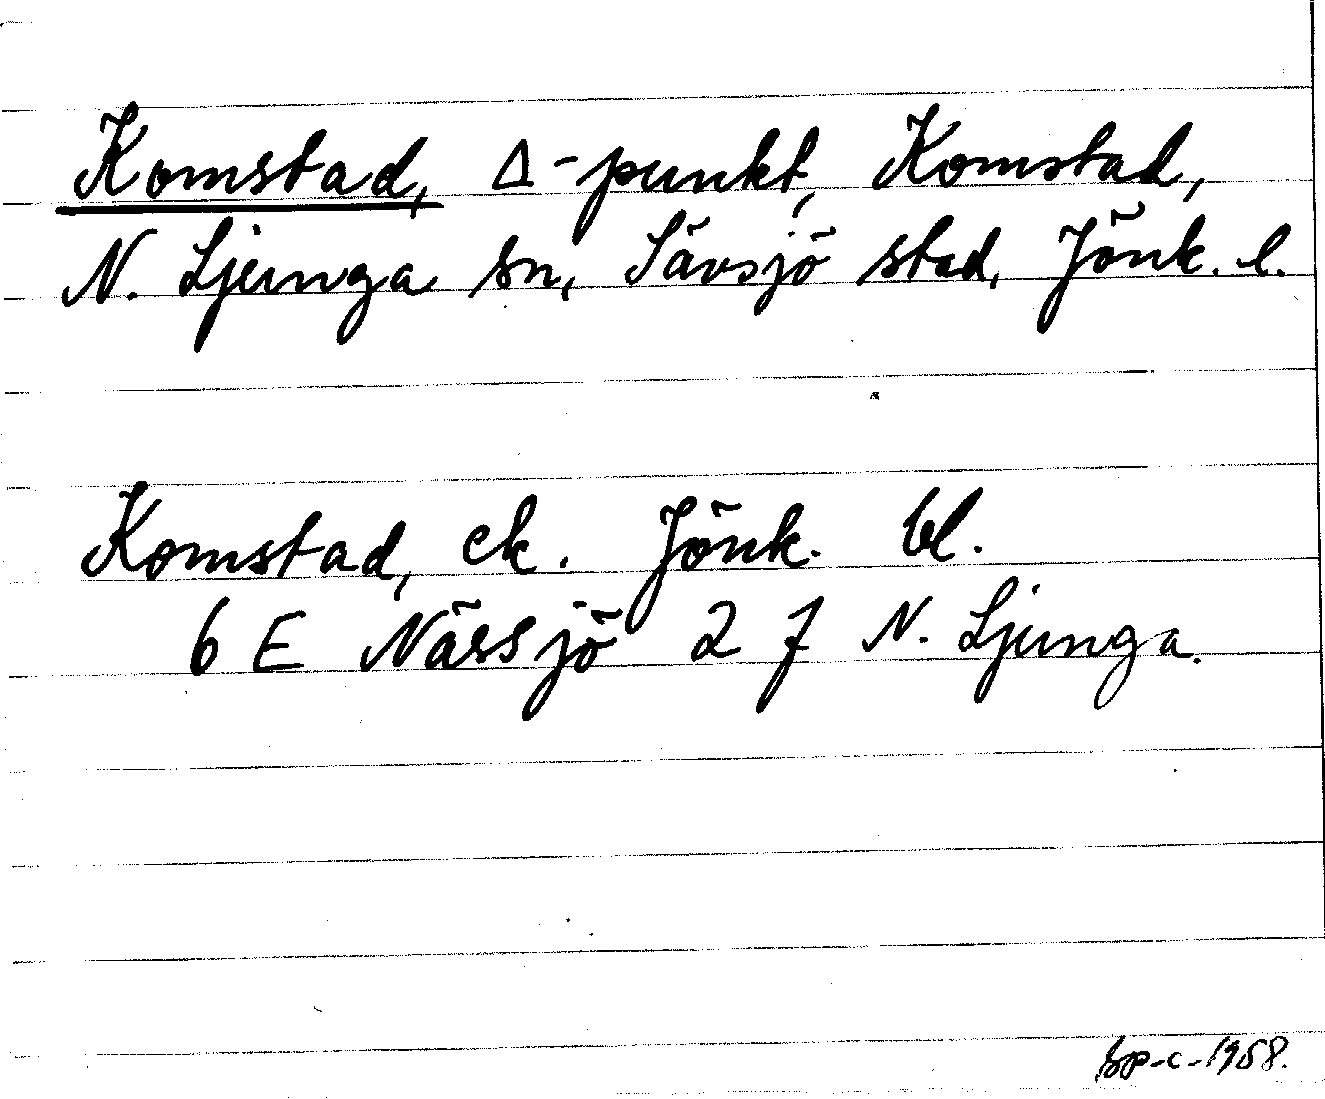 Komstad, Δ-punkt, Komstad,
N. Ljunga sn, Sävsjö stad, Jönk. l.
Komstad, ek. Jönk. bl.
6 E Nässjö 2 f N. Ljunga.
sp-c-1958.